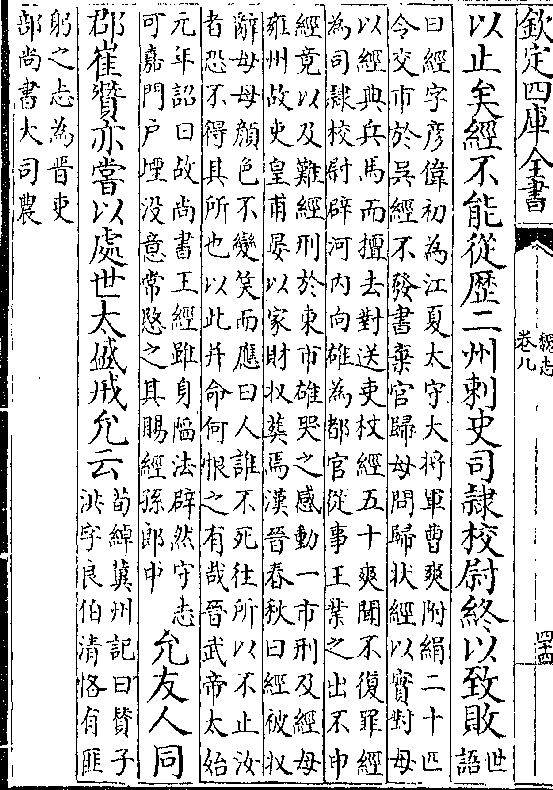 欽定四庫全書
魏志
卷九
四十四
以止矣經不能從歷二州刺史司隸校尉終以致敗
世
語
曰經字彦偉初為江夏太守大將軍曹爽附絹二十匹
令交市於吳經不發書棄官歸母問歸狀經以實對母
以經典兵馬而擅去對送吏杖經五十爽聞不復罪經
為司隸校尉辟河内向雄為都官從事王業之出不申
經竟以及難經刑於東市雄哭之感動一市刑及經母
雍州故吏皇甫晏以家財收葬焉漢晉春秋曰經被收
辭母母顔色不變笑而應曰人誰不死往所以不止汝
者恐不得其所也以此并命何恨之有哉晉武帝太始
元年詔曰故尚書王經雖身陷法辟然守志
可嘉門户堙没意常愍之其賜經孫郎中
允友人同
郡崔贊亦嘗以處世太盛戒允云
荀綽冀州記曰贊子
洪字良伯清恪有匪
躬之志為晉吏
部尚書大司農